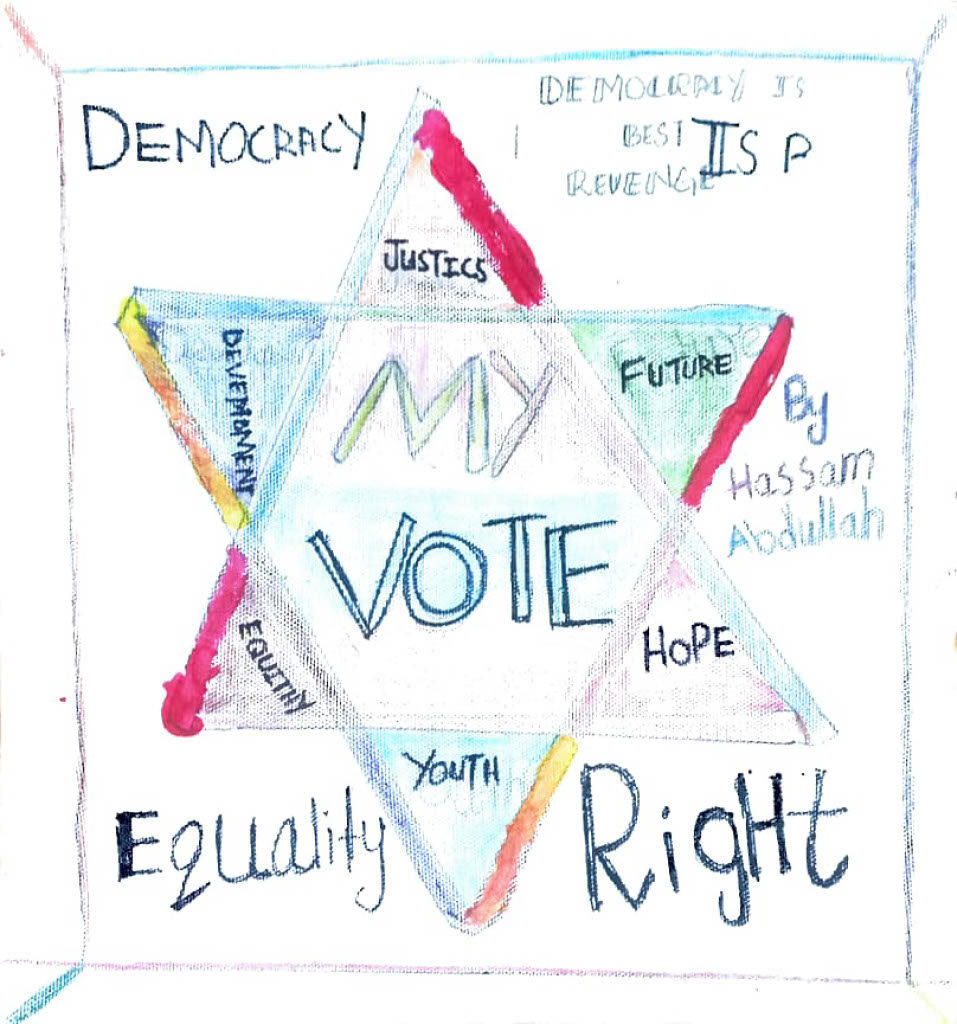 DEMOCRACY
DEMOCRACY IS
BEST
REVEINGE
IS P
JUSTICS
DEVEMOMENT
MY
FUTURE
By
Hassam
Abdullah
VOTE
EQUITHY
HOPE
YOUTH
Equality
RigHt